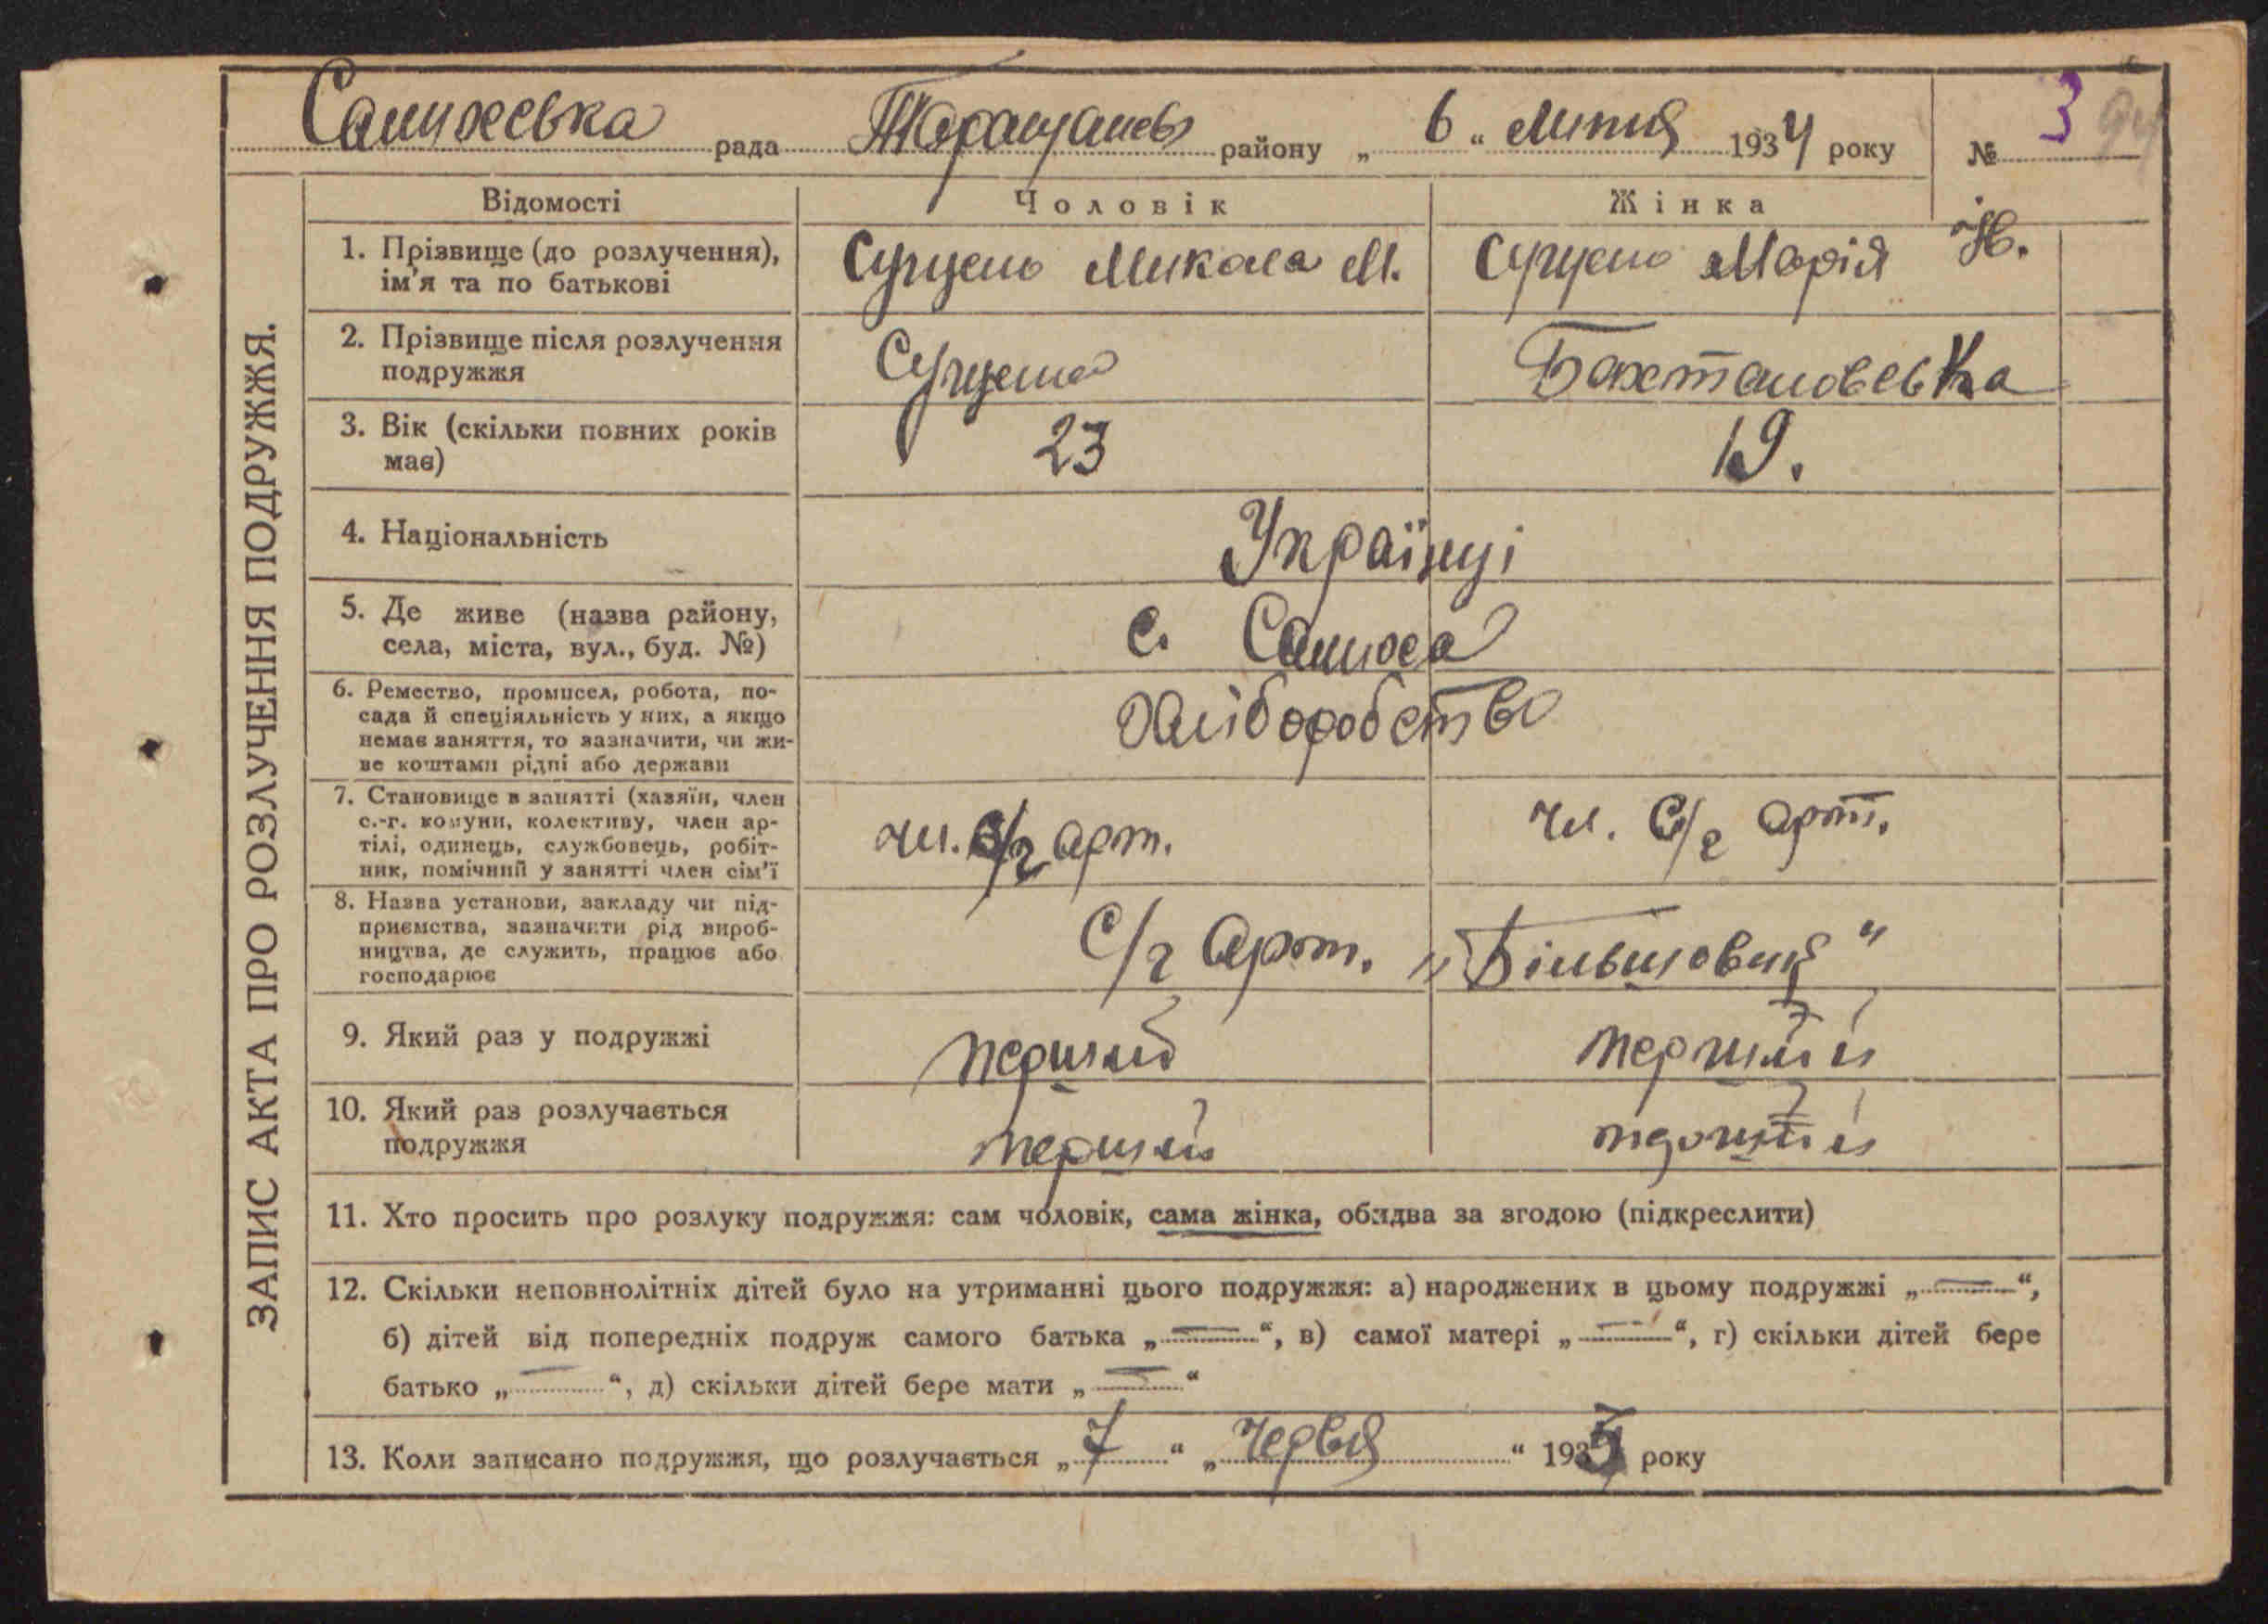 Салихська рада Таращанськ району „ 6 “ Липня 1934 року № 3
ЗАПИС АКТА ПРО РОЗЛУЧЕННЯ ПОДРУЖЖЯ.
Відомості Чоловік Жінка
1. Прізвище (до розлучення), ім'я та по батькові Микола М. Марія Н.
2. Прізвище після розлучення
подружжя
3. Вік (скільки повних років
має) 23 19.
4. Національність Українці
5. Де живе (назва району,
села, міста, вул., буд. №) с. Салиха
6. Ремество, промисел, робота, по-
сада й спеціяльність у них, а якщо
немає заняття, то зазначити, чи жи-
ве коштами рідні або держави Хліборобство
7. Становище в занятті (хазяїн, член
с.-г. комуни, колективу, член ар-
тілі, одинець, службовець, робіт-
ник, помічний у занятті член сім'ї чл. с/г арт. чл. с/г арт.
8. Назва установи, закладу чи під-
приємства, зазначити рід вироб-
ництва, де служить, працює або
господарює С/г Арт. „Більшовик“
9. Який раз у подружжі перший перший
10. Який раз розлучається
подружжя перший перший
11. Хто просить про розлуку подружжя: сам чоловік, сама жінка, обидва за згодою (підкреслити)
12. Скільки неповнолітніх дітей було на утриманні цього подружжя: а) народжених в цьому подружжі „ — “,
б) дітей від попередніх подруж самого батька „ — “, в) самої матері „ — “, г) скільки дітей бере
батько „ — “, д) скільки дітей бере мати „ — “
13. Коли записано подружжя, що розлучається „ 7 “ „ Червня “ 193 року